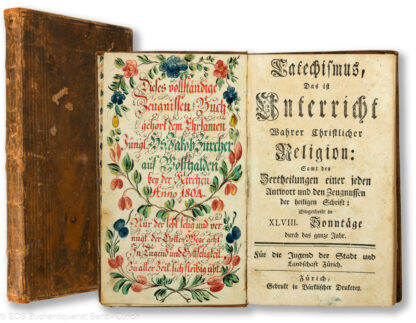 Dieses vollständige
Zeugnissen-Buch
gehört dem Ehrsamen
Jungl. Hs. Jakob Zürcher
auf
bey der Kirchen
Anno 1804.
Nur der lebt selig und ver-
nügt der Gottes Wege geht
In Tugend und Gottseligkeit
Zu aller Zeit sich fleißig übt.
Catechismus,
Das ist
Unterricht
Wahrer Christlicher
Religion:
Samt den
Zertheilungen einer jeden
Antwort und den Zeugnussen
der heiligen Schrift;
Eingetheilt in
XLVIII. Sonntäge
durch das ganze Jahr.
Für die Jugend der Stadt und
Landschaft Zürich.
Zürich,
Gedruckt in Bürklischer Druckerey.
© EOS Buchantiquariat Benz, Zürich